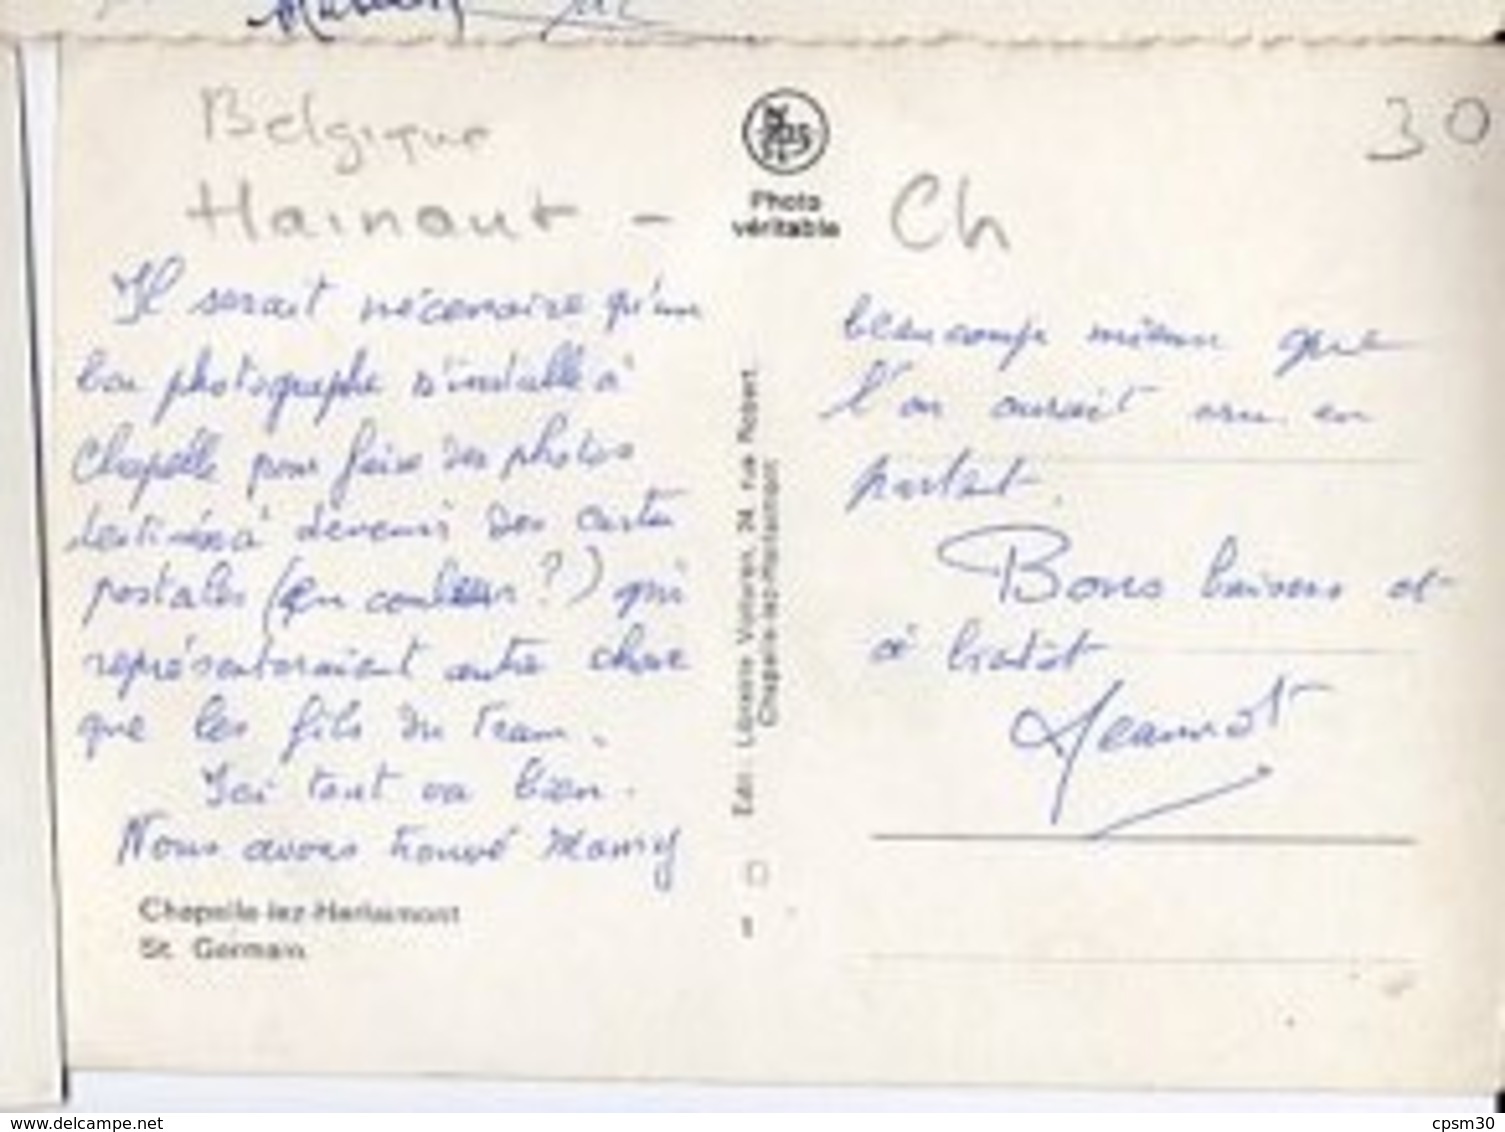 Belgique
Hainaut - Ch
30
Photo
véritable
Il serait nécessaire qu'un
bon photographe s'installe à
Chapelle pour faire des photos
destinées à devenir des cartes
postales (en couleurs ?) qui
représenteraient autre chose
que les fils du tram.
Ici tout va bien.
Nous avons trouvé Mamy
Chapelle-lez-Herlaimont
St. Germain
Edit.: Librairie 24, rue Robert.
Chapelle-lez-Herlaimont
1
beaucoup mieux que
l'on aurait cru en
partant.
Bons baisers et
à bientôt
Jeannot
www.delcampe.net
cpsm30